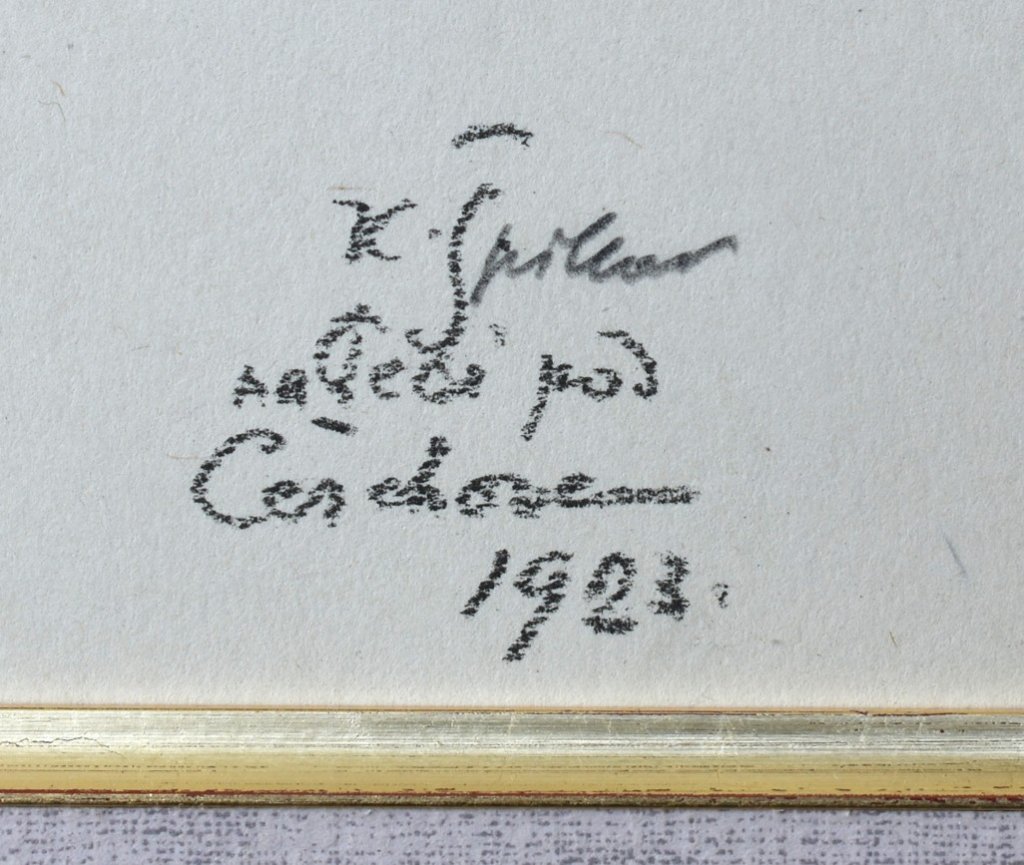 K. Špillar
na Peci pod
Čerchovem
1923.